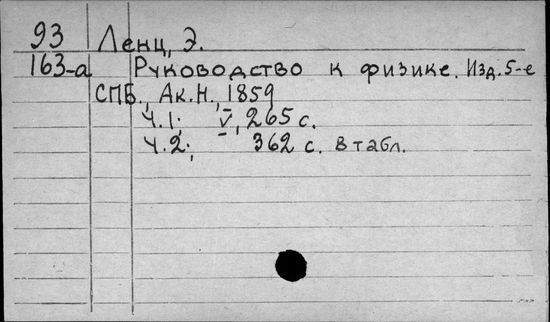 93 Ленц, Э.
163-а Руководство к физике. Изд. 5-е
СПБ., Ак.Н., 1859
Ч.1; V, 265 с.
Ч.2; 362 с. 8 табл.